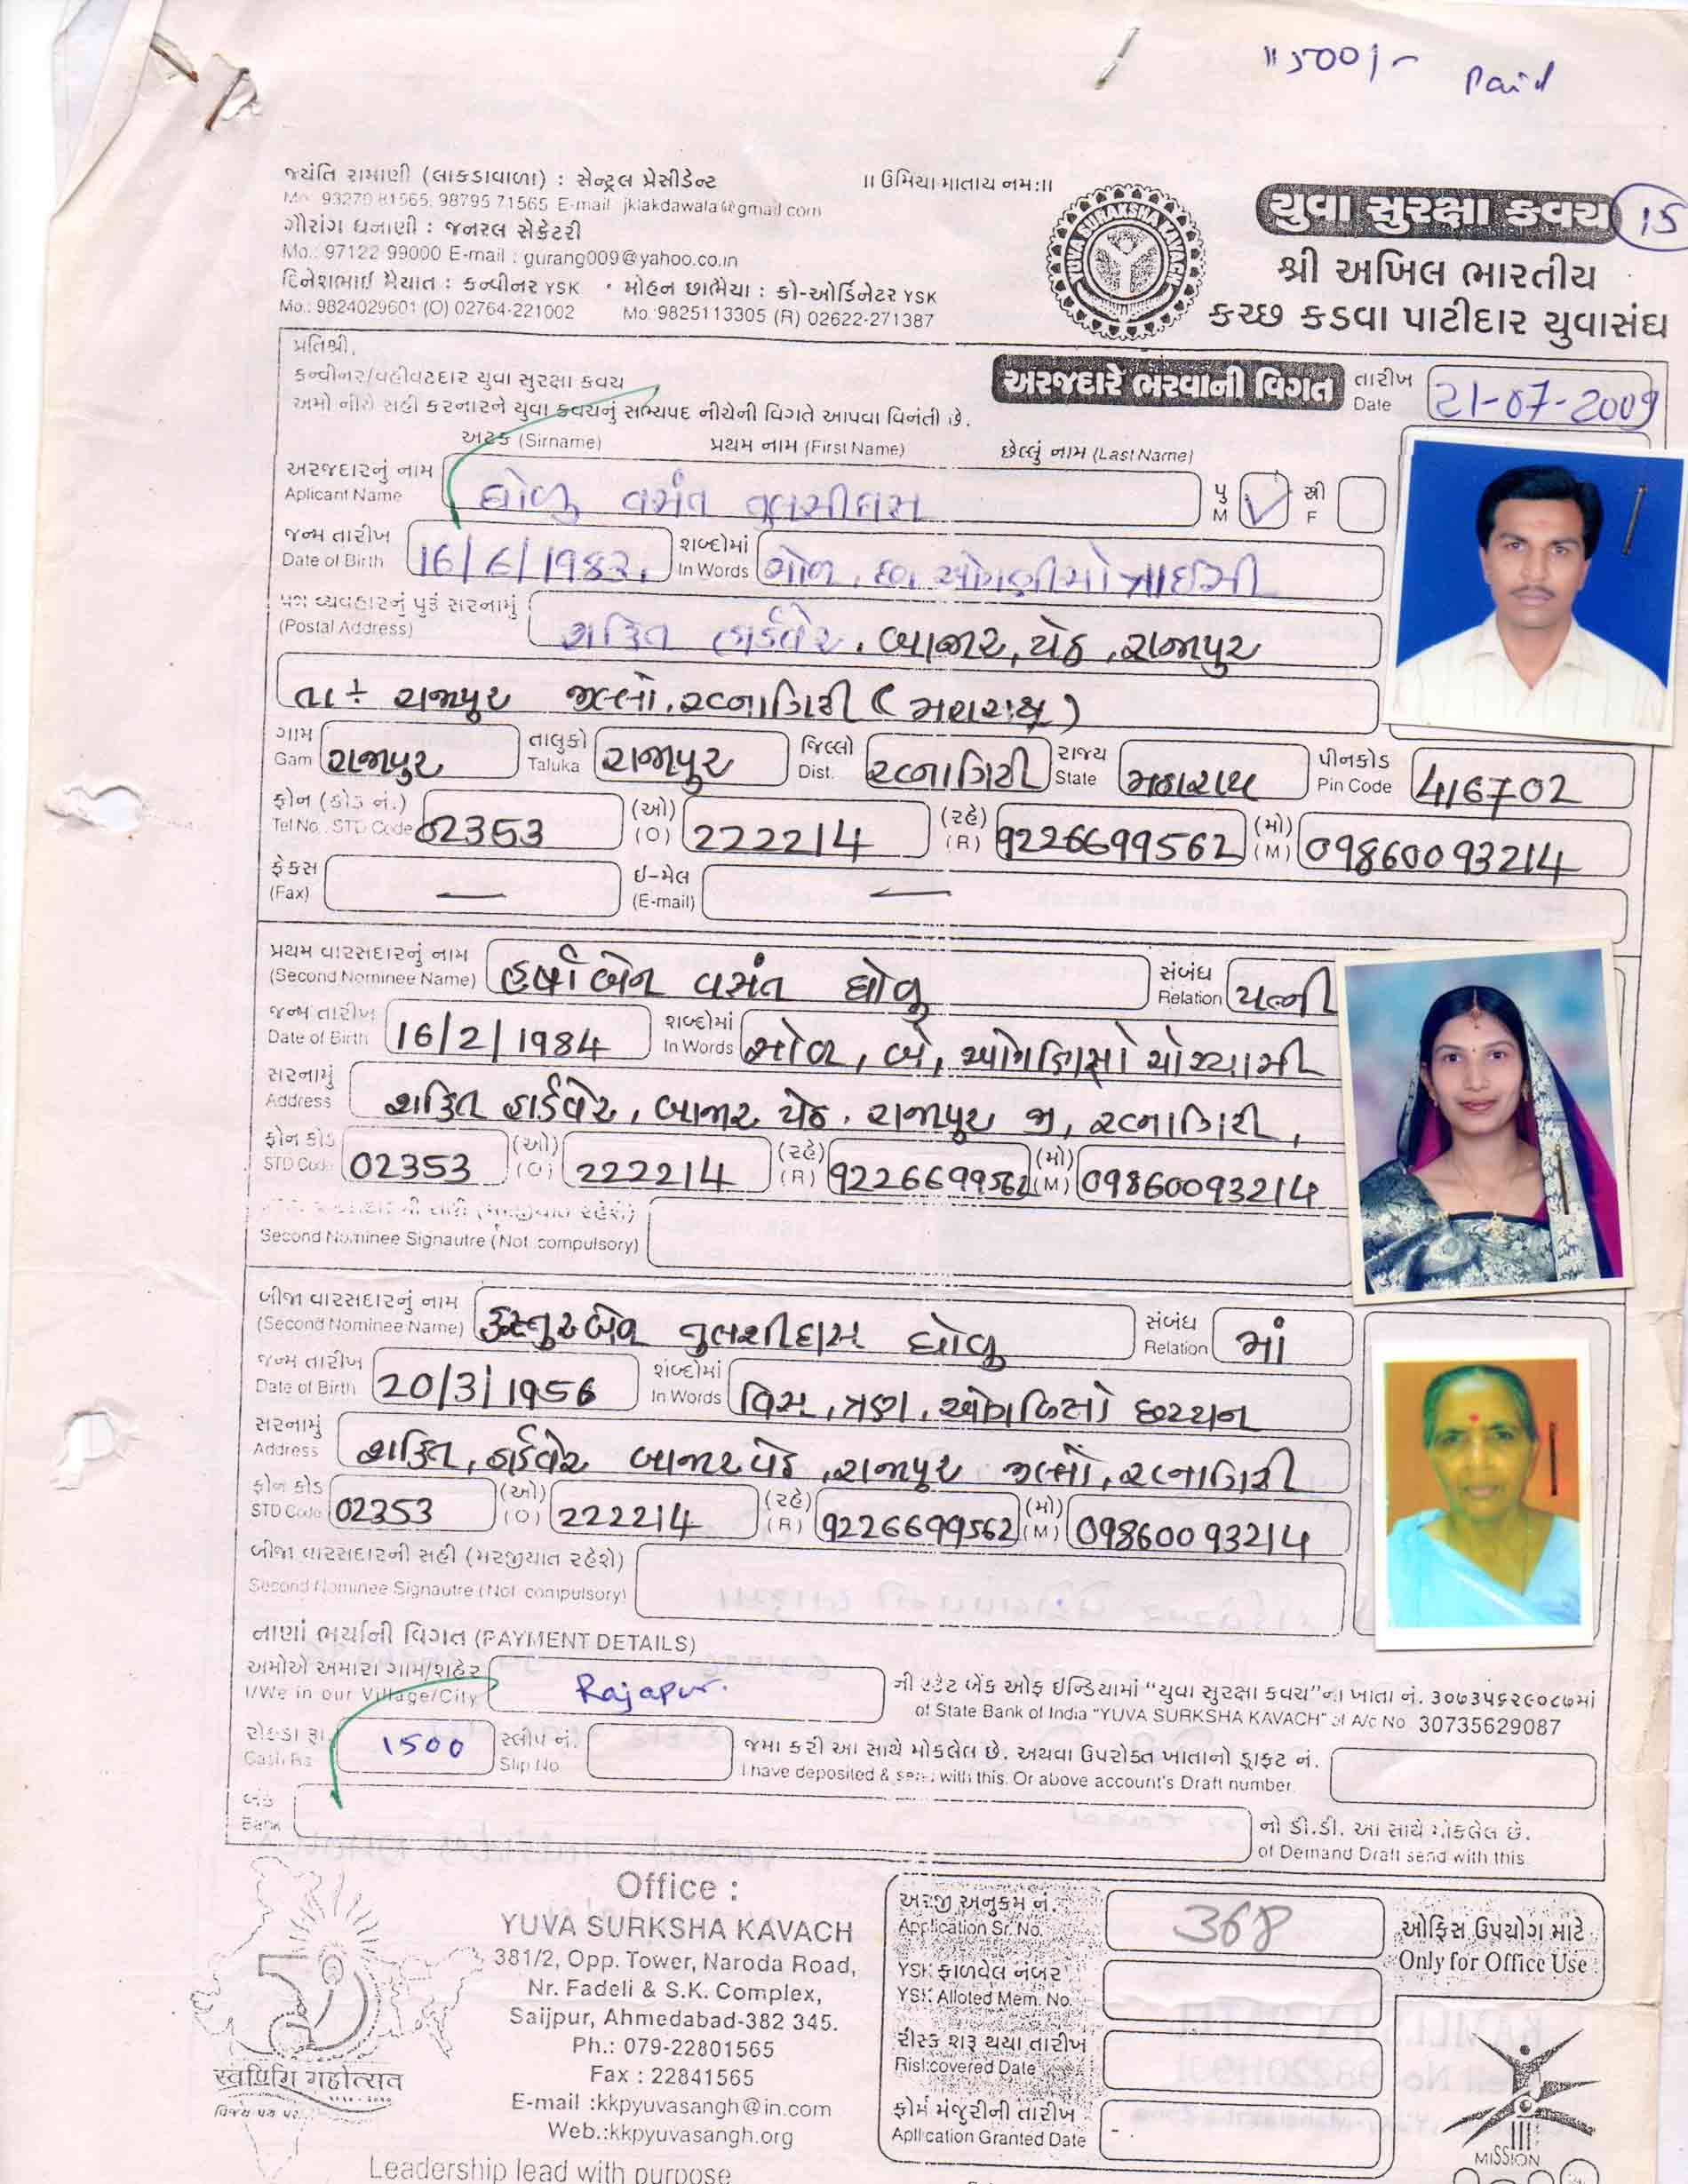 1500/- Paid
જયંતિ રામાણી (લાકડાવાળા) : સેન્ટ્રલ પ્રેસીડેન્ટ
Mo. 93270 81565, 98795 71565 E-mail jklakdawala@gmail.com
ગૌરાંગ ધનાણી : જનરલ સેક્રેટરી
Mo.: 97122 99000 E-mail : gurang009@yahoo.co.in
દિનેશભાઈ મૈયાત : કન્વીનર YSK • મોહન છાભૈયા : કો-ઓર્ડિનેટર YSK
Mo.: 9824029601 (O) 02764-221002 Mo.:9825113305 (R) 02622-271387
।। ઉમિયા માતાય નમ:।।
YUVA SURAKSHA KAVACH
યુવા સુરક્ષા કવચ 15
શ્રી અખિલ ભારતીય
કચ્છ કડવા પાટીદાર યુવાસંઘ
પ્રતિશ્રી,
કન્વીનર/વહીવટદાર યુવા સુરક્ષા કવચ
અમો નીચે સહી કરનારને યુવા કવચનું સભ્યપદ નીચેની વિગતે આપવા વિનંતી છે.
અરજદારે ભરવાની વિગત
તારીખ
Date 21-07-2009
અટક (Sirname) પ્રથમ નામ (First Name) છેલ્લું નામ (Last Name)
અરજદારનું નામ
Aplicant Name ઘોળુ વસંત તુલસીદાસ પુ M ✓ સ્રી F
જન્મ તારીખ
Date of Birth 16/6/1983 શબ્દોમાં In Words સોળ, છ, ઓગણીસો ત્રાઈસી
પત્ર વ્યવહારનું પુરૂં સરનામું
(Postal Address) શક્તિ હાર્ડવેર, બાજાર, પેઠ, રાજાપુર
તા ÷ રાજાપુર જીલ્લો, રત્નાગિરી (મહારાષ્ટ્ર)
ગામ
Gam રાજાપુર તાલુકો Taluka રાજાપુર જિલ્લો Dist. રત્નાગિરી રાજ્ય State મહારાષ્ટ્ર પીનકોડ Pin Code 416702
ફોન (કોડ નં.)
Tel No. STD Code 02353 (ઓ) (O) 222214 (રહે) (R) 9226699562 (મો) (M) 09860093214
ફેકસ
(Fax) — ઈ-મેલ (E-mail) —
પ્રથમ વારસદારનું નામ
(Second Nominee Name) હર્ષાબેન વસંત ઘોળુ સંબંધ Relation પત્ની
જન્મ તારીખ
Date of Birth 16/2/1984 શબ્દોમાં In Words સોળ, બે, ઓગણિસો ચોર્યાસી
સરનામું
Address શક્તિ હાર્ડવેર, બાજાર પેઠ, રાજાપુર જી, રત્નાગિરી,
ફોન કોડ
STD Code 02353 (ઓ) (O) 222214 (રહે) (R) 9226699562 (મો) (M) 09860093214
Second Nominee Signautre (Not compulsory)
બીજા વારસદારનું નામ
(Second Nominee Name) કસ્તુરબેન તુલશીદાસ ઘોળુ સંબંધ Relation માં
જન્મ તારીખ
Date of Birth 20/3/1956 શબ્દોમાં In Words વિસ, ત્રણ, ઓગણિસો છપ્પન
સરનામું
Address શક્તિ, હાર્ડવેર બાજાર પેઠ, રાજાપુર જીલ્લો, રત્નાગિરી
ફોન કોડ
STD Code 02353 (ઓ) (O) 222214 (રહે) (R) 9226699562 (મો) (M) 09860093214
બીજા વારસદારની સહી (મરજીયાત રહેશે)
Second Nominee Signautre (Not compulsory)
નાણાં ભર્યાની વિગત (PAYMENT DETAILS)
અમોએ અમારા ગામ/શહેર
I/We in our Village/City Rajapur. ની સ્ટેટ બેંક ઓફ ઇન્ડિયામાં "યુવા સુરક્ષા કવચ"ના ખાતા નં. ૩૦૭૩૫૬૨૯૦૮૭માં
of State Bank of India "YUVA SURKSHA KAVACH" of A/c No 30735629087
રોકડા રૂા.
Cash Rs 1500 સ્લીપ નં. Slip No જમા કરી આ સાથે મોકલેલ છે. અથવા ઉપરોક્ત ખાતાનો ડ્રાફ્ટ નં.
I have deposited & send with this. Or above account's Draft number
બેંક
Bank નો ડી.ડી. આ સાથે મોકલેલ છે.
of Demand Draft send with this
Office :
YUVA SURKSHA KAVACH
381/2, Opp. Tower, Naroda Road,
Nr. Fadeli & S.K. Complex,
Saijpur, Ahmedabad-382 345.
Ph.: 079-22801565
Fax : 22841565
E-mail :kkpyuvasangh@in.com
Web.:kkpyuvasangh.org
Leadership lead with purpose
અરજી અનુક્રમ નં.
Application Sr. No. 368
YSK ફાળવેલ નંબર
YSK Alloted Mem. No.
રીસ્ક શરૂ થયા તારીખ
Risk covered Date
ફોર્મ મંજુરીની તારીખ
Apllication Granted Date
ઓફિસ ઉપયોગ માટે
Only for Office Use
MISSION